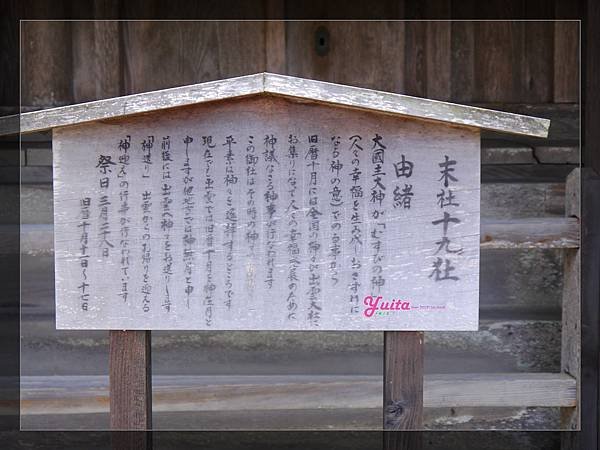 末社十九社
由緒
大國主大神が「むすびの神
(人々の幸福を生み成しおさずけに
なる神の意)での古事から
旧暦十月には全国の神々が出雲大社に
お集りになって人々の幸福発展のために
神議なさる神事が行なわれます
この御社はその時の神々の
平素は神々を遙拝するところです
現在でも出雲では旧暦十月を神在月と
申しますが他地方では神無月と申し
前後には出雲へ神々をお送りします
「神送り」出雲からのお帰りを迎える
「神迎え」の行事が行なわれています
祭日 三月二十八日
旧暦十月十一日~十七日
Yuita